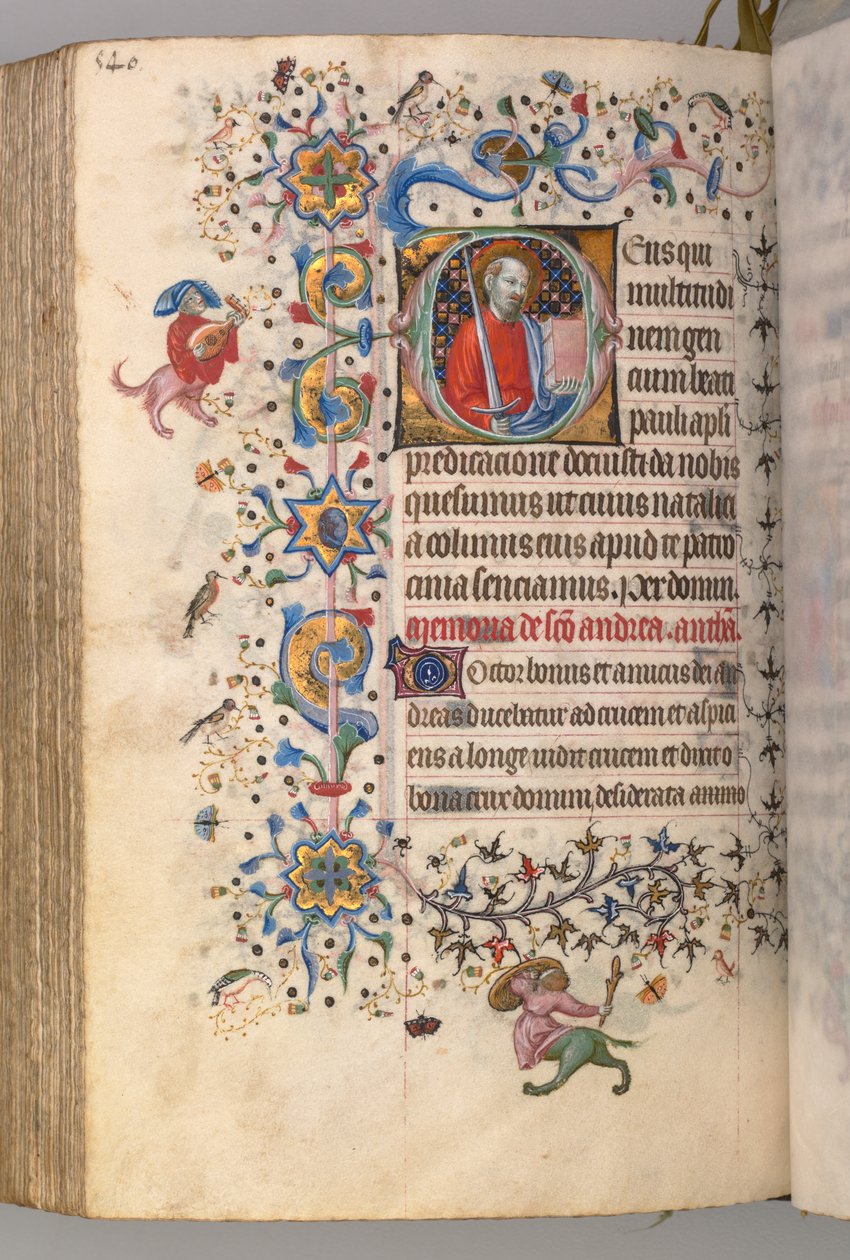 540.
Eus qui
multitudi
nem gen
cium beati
pauli apli
predicacione docuisti da nobis
quesumus ut cuius natalici
a colimus eius apud te patro
cinia senciamus. Per domin.
Memoria de sco andrea. antha.
Doctor bonus et amicus dei an
dreas ducebatur ad crucem et aspici
ens a longe vidit crucem et dixit o
bona crux domini, desiderata animo